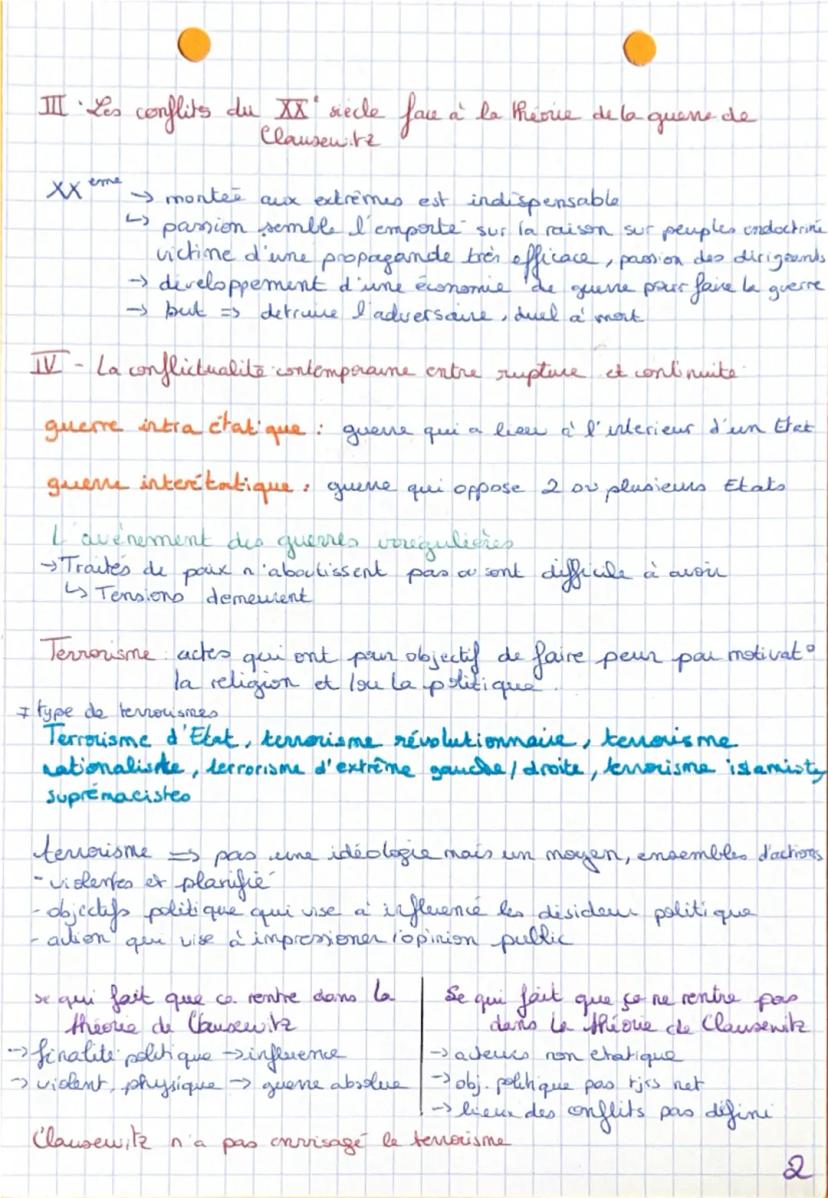 III. Les conflits du XXe siècle face à la théorie de la guerre de
Clausewitz
XXeme → montée aux extrêmes est indispensable
↳ passion semble l'emporté sur la raison sur peuples endoctriné
victime d'une propagande très efficace, passion des dirigeants
→ développement d'une économie de guerre pour faire la guerre
→ but => detruire l'adversaire, duel à mort
IV - La conflictualité contemporaine entre rupture et continuité
guerre intra étatique : guerre qui a lieu à l'interieur d'un Etat
guerre interétatique : guerre qui oppose 2 ou plusieurs Etats
L'avénement des guerres irrégulières
→ Traités de paix n'aboutissent pas ou sont difficile à avoir
↳ Tensions demeurent
Terrorisme : actes qui ont pour objectif de faire peur par motivat°
la religion et/ou la politique.
≠ type de terrorismes
Terrorisme d'Etat, terrorisme révolutionnaire, terrorisme
nationaliste, terrorisme d'extrême gauche/droite, terrorisme islamiste,
suprémacistes
terrorisme => pas une idéologie mais un moyen, ensembles d'actions
- violentes et planifié
- objectifs politique qui vise à influencé les désideur politique
- action qui vise à impressioner l'opinion public
se qui fait que ca rentre dans la
théorie de Clausewitz
→ finalité politique → influence
→ violent, physique → guerre absolue
Se qui fait que ça ne rentre pas
dans la théorie de Clausewitz
→ acteurs non etatique
→ obj. politique pas tjrs net
→ lieux des conflits pas défini
Clausewitz n'a pas envisagé le terrorisme
2